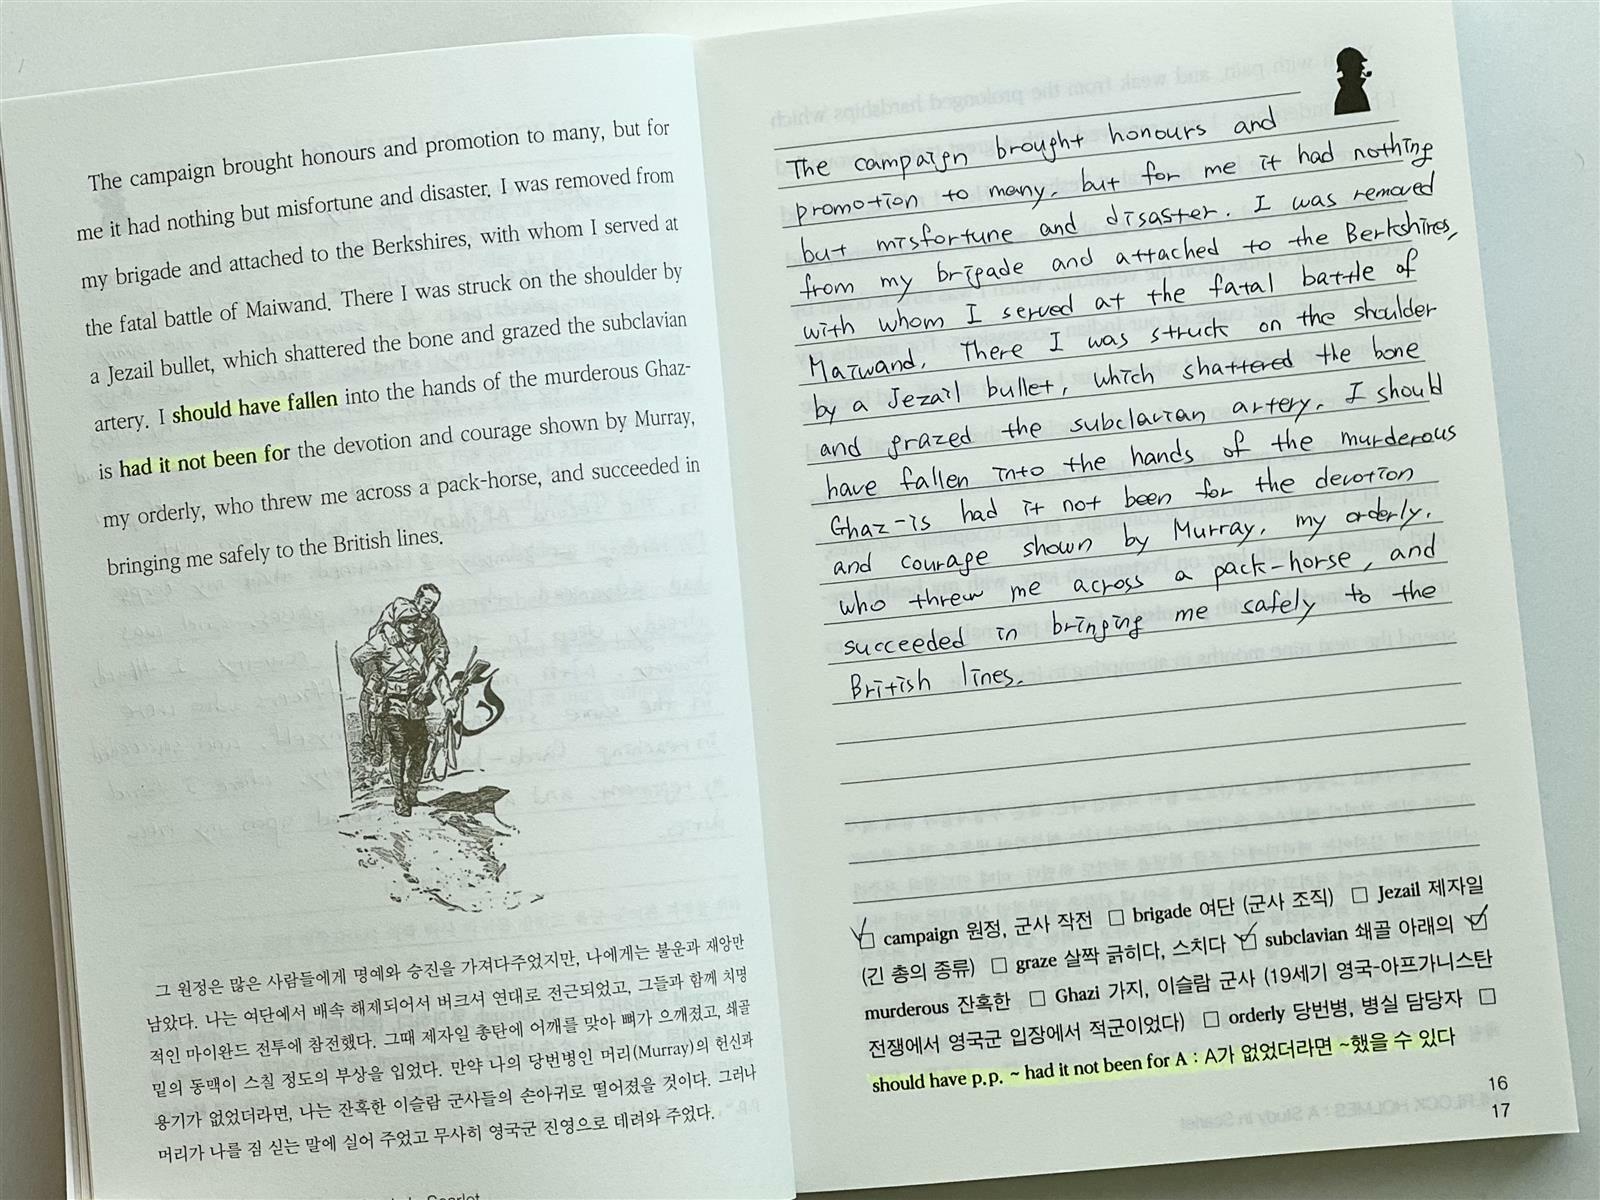 The campaign brought honours and promotion to many, but for
me it had nothing but misfortune and disaster. I was removed from
my brigade and attached to the Berkshires, with whom I served at
the fatal battle of Maiwand. There I was struck on the shoulder by
a Jezail bullet, which shattered the bone and grazed the subclavian
artery. I should have fallen into the hands of the murderous Ghaz-
is had it not been for the devotion and courage shown by Murray,
my orderly, who threw me across a pack-horse, and succeeded in
bringing me safely to the British lines.
R.G
그 원정은 많은 사람들에게 명예와 승진을 가져다주었지만, 나에게는 불운과 재앙만
남았다. 나는 여단에서 배속 해제되어서 버크셔 연대로 전근되었고, 그들과 함께 치명
적인 마이완드 전투에 참전했다. 그때 제자일 총탄에 어깨를 맞아 뼈가 으깨졌고, 쇄골
밑의 동맥이 스칠 정도의 부상을 입었다. 만약 나의 당번병인 머리(Murray)의 헌신과
용기가 없었더라면, 나는 잔혹한 이슬람 군사들의 손아귀로 떨어졌을 것이다. 그러나
머리가 나를 짐 싣는 말에 실어 주었고 무사히 영국군 진영으로 데려와 주었다.
The campaign brought honours and
promotion to many, but for me it had nothing
but misfortune and disaster. I was removed
from my brigade and attached to the Berkshires,
with whom I served at the fatal battle of
Maiwand. There I was struck on the shoulder
by a Jezail bullet, which shattered the bone
and grazed the subclavian artery. I should
have fallen into the hands of the murderous
Ghaz-is had it not been for the devotion
and courage shown by Murray, my orderly,
who threw me across a pack-horse, and
succeeded in bringing me safely to the
British lines.
campaign 원정, 군사 작전 □ brigade 여단 (군사 조직) □ Jezail 제자일
(긴 총의 종류) □ graze 살짝 긁히다, 스치다 ☑ subclavian 쇄골 아래의 ☑
murderous 잔혹한 □ Ghazi 가지, 이슬람 군사 (19세기 영국-아프가니스탄
전쟁에서 영국군 입장에서 적군이었다) □ orderly 당번병, 병실 담당자 □
should have p.p. ~ had it not been for A : A가 없었더라면 ~했을 수 있다
16
17